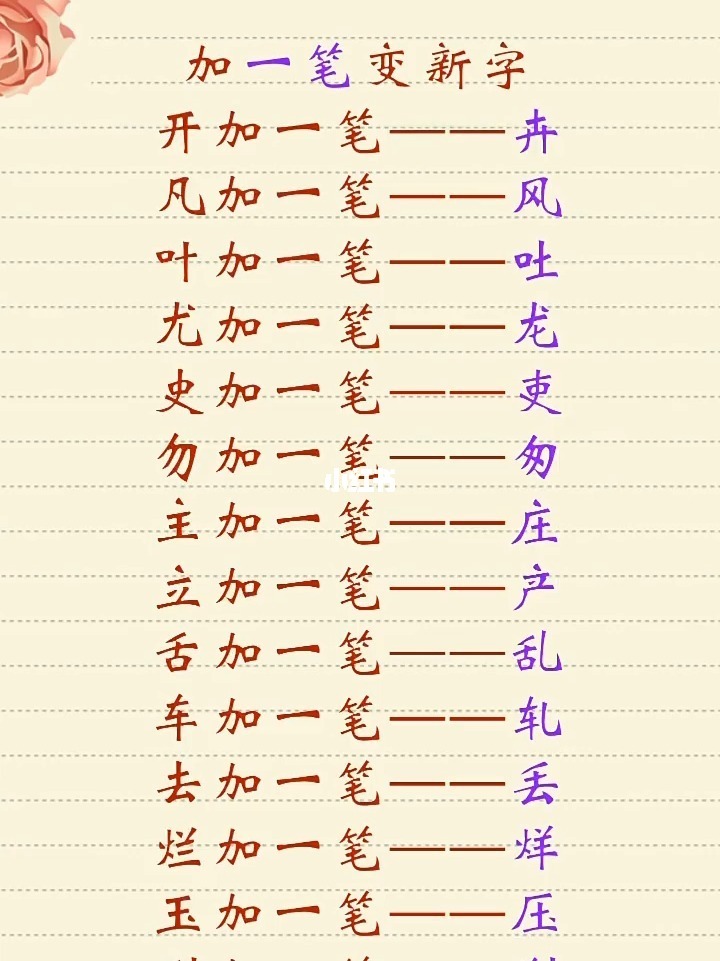 加一笔变新字
开加一笔——卉
凡加一笔——风
叶加一笔——吐
尤加一笔——龙
史加一笔——吏
勿加一笔——匆
小红书
主加一笔——庄
立加一笔——产
舌加一笔——乱
车加一笔——轧
去加一笔——丢
烂加一笔——烊
玉加一笔——压